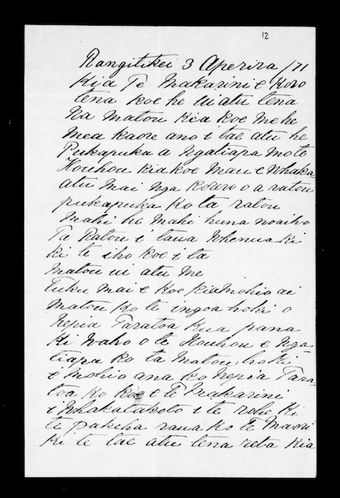 12
Rangitikei 3 Aperira /71
Kia Te Makarini e Koro
tena koe he ui atu tena
Na matou kia koe mehe
mea kaore ano i tae atu he
Pukapuka a Ngatiapa mo to
Kouhou kia koe Mau e Whaka
atu mai Nga Korero o a ratou
pukapuka ko ta ratou
mahi he mahi huna noaiho
Ta Ratou i taua Whenua ki
ki te iho koe i ta
matou ui atu me
Tuku Mai e Koe kia Mohio ai
matou ko te ingoa hoki o
Kepia Taratoa Kua pana
Ki Waho o te Kouhou e Nga
tiapa ko ta Matou hoki
i Mohio ana ko Kepia Tara
toa ko koe e te Makarini
i Whakatakoto i te rohe Ki
te pakeha raua ko te Maori
Ki te tae atu tena reta Kia